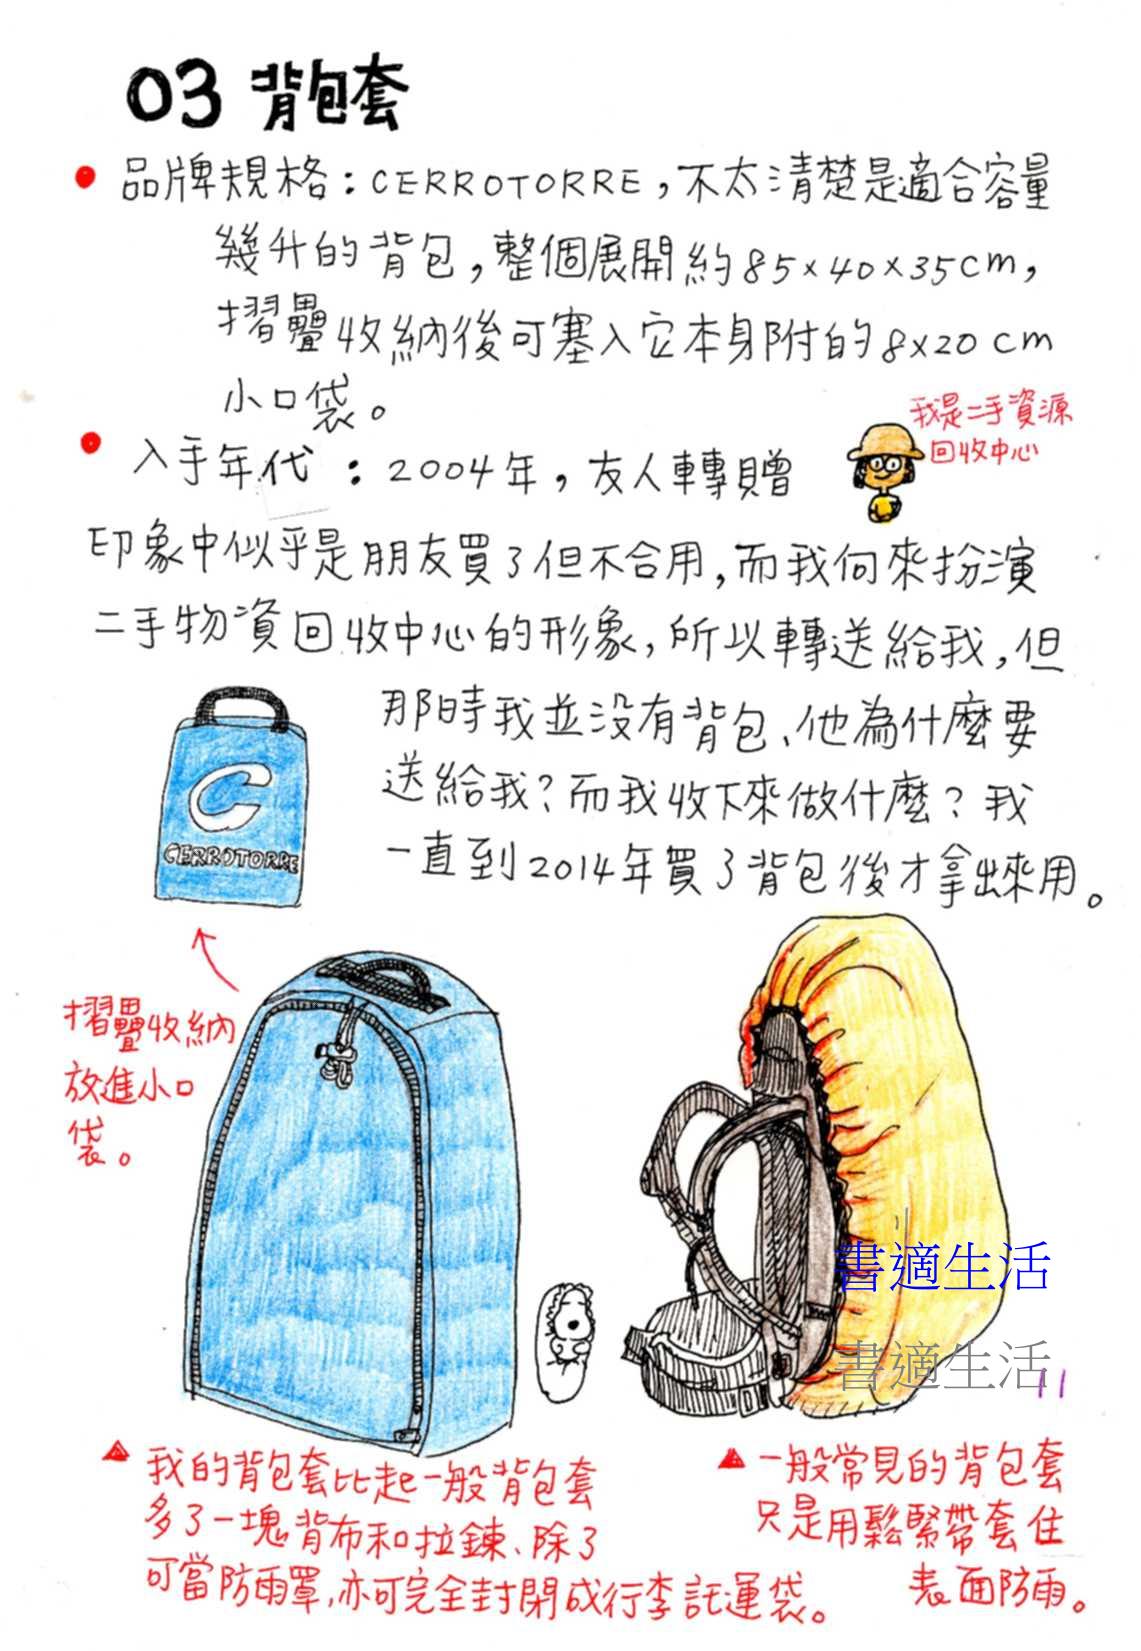 03 背包套
品牌規格：CERROTORRE，不太清楚是適合容量
幾升的背包，整個展開約85×40×35cm，
摺疊收納後可塞入它本身附的8×20cm
小口袋。
我是二手資源
回收中心
入手年代：2004年，友人轉贈
印象中似乎是朋友買了但不合用，而我向來扮演
二手物資回收中心的形象，所以轉送給我，但
那時我並沒有背包、他為什麼要
送給我？而我收下來做什麼？我
一直到2014年買了背包後才拿出來用。
C
CERROTORRE
摺疊收納
放進小口
袋。
書適生活
書適生活
11
我的背包套比起一般背包套
多了一塊背布和拉鍊、除了
可當防雨罩，亦可完全封閉成行李託運袋。
一般常見的背包套
只是用鬆緊帶套住
表面防雨。